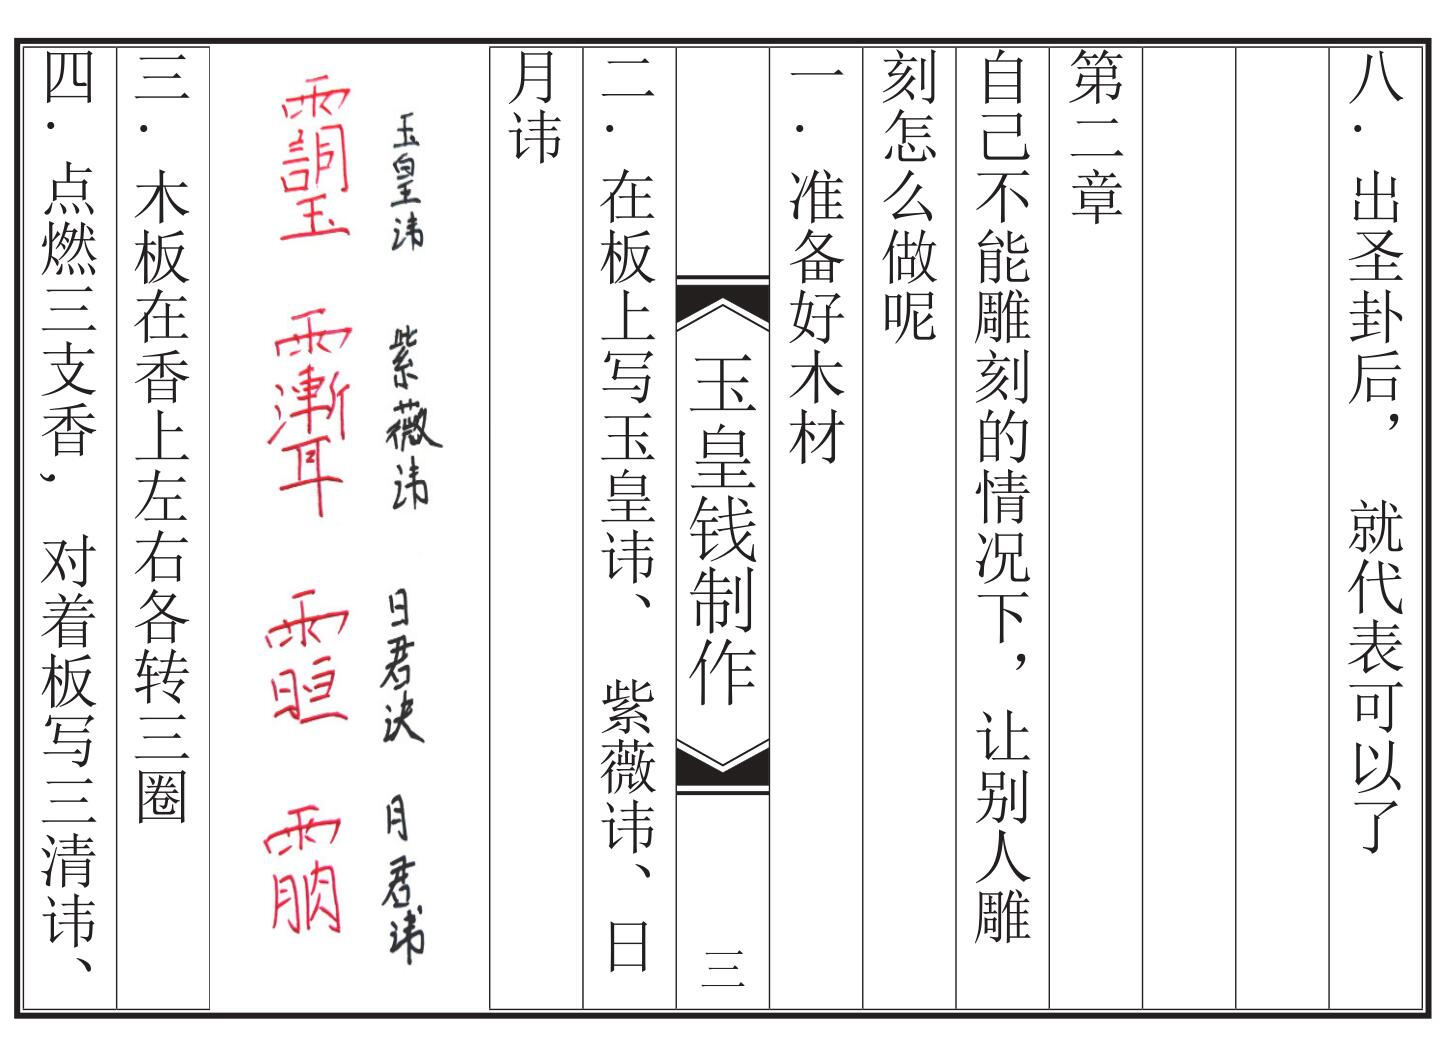 八．出圣卦后，就代表可以了
第二章
自己不能雕刻的情况下，让别人雕
刻怎么做呢
一．准备好木材
玉皇钱制作
三
二．在板上写玉皇讳、紫薇讳、日
月讳
玉皇讳
紫薇讳
日君讳
月君讳
三．木板在香上左右各转三圈
四．点燃三支香，对着板写三清讳、